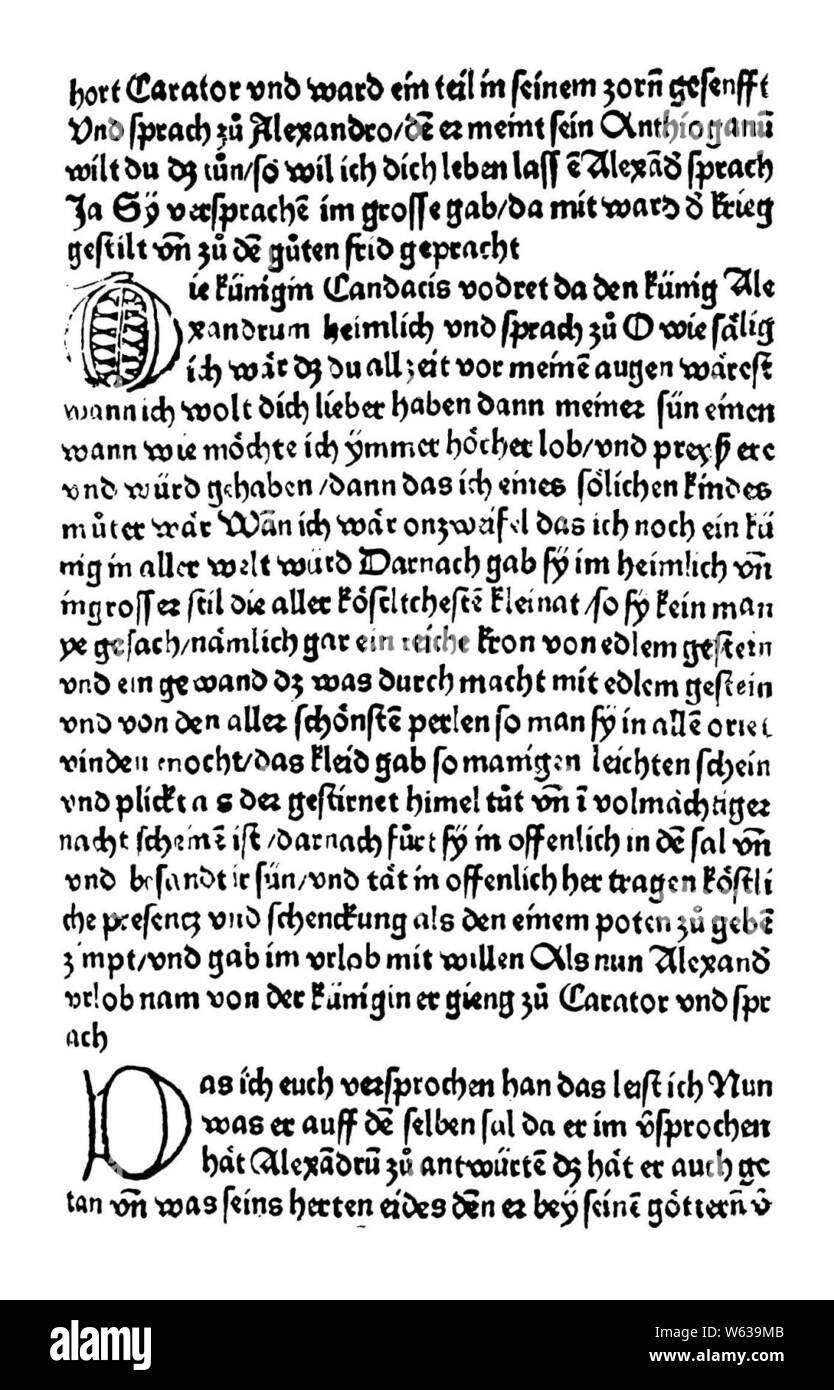 hort Carator vnd ward ein teil in seinem zorñ gesenfft
Vnd sprach zů Alexandro/dē er meint sein Anthioganū
wilt du dz tůn/so wil ich dich leben lassē Alexād̄ sprach
Ja Sÿ versprachē im grosse gab/da mit ward d̄ krieg
gestilt vn̄ zů dē gůten frid gepracht
Die künigin Candacis vodret da den künig Ale
xandrum heimlich vnd sprach zů O wie sälig
ich wär dz du all zeit vor meinē augen wärest
wann ich wolt dich lieber haben dann meiner sün einen
wann wie möchte ich ÿmmer höcher lob/vnd ere
vnd würd gehaben/dann das ich eines sölichen kindes
můter wär Wān ich wär onzweifel das ich noch ein kü
nigin aller welt wurd Darnach gab sÿ im heimlich vn̄
in grosser stil die aller köseltchestē kleinat/so sÿ kein man
ye gesach/nämlich gar ein reiche kron von edlem gestein
vnd ein gewand dz was durch macht mit edlem gestein
vnd von den aller schönstē perlen so man sÿ in allē
vinden mocht/das kleid gab so manigen leichten schein
vnd plickt als der gestirnet himel tůt vn̄ ī volmächtiger
nacht scheinē ist/darnach fůrt sÿ in offenlich in dē sal vn̄
vnd besandt ir sün/vnd tät in offenlich her tragen köstli
che presencz vnd schenckung als den einem poten zů gebē
zimpt/vnd gab im vrlob mit willen Als nun Alexand̄
vrlob nam von der künigin er gieng zů Carator vnd spr
ach
Das ich euch versprochen han das leist ich Nun
was er auff dē selben sal da er im v̄sprochen
hät Alexādrū zů antwürtē dz hät er auch ge
tan vn̄ was seins herten eides dēn er beÿ seinē götterñ v̄
alamy
Image ID: W639MB
www.alamy.com